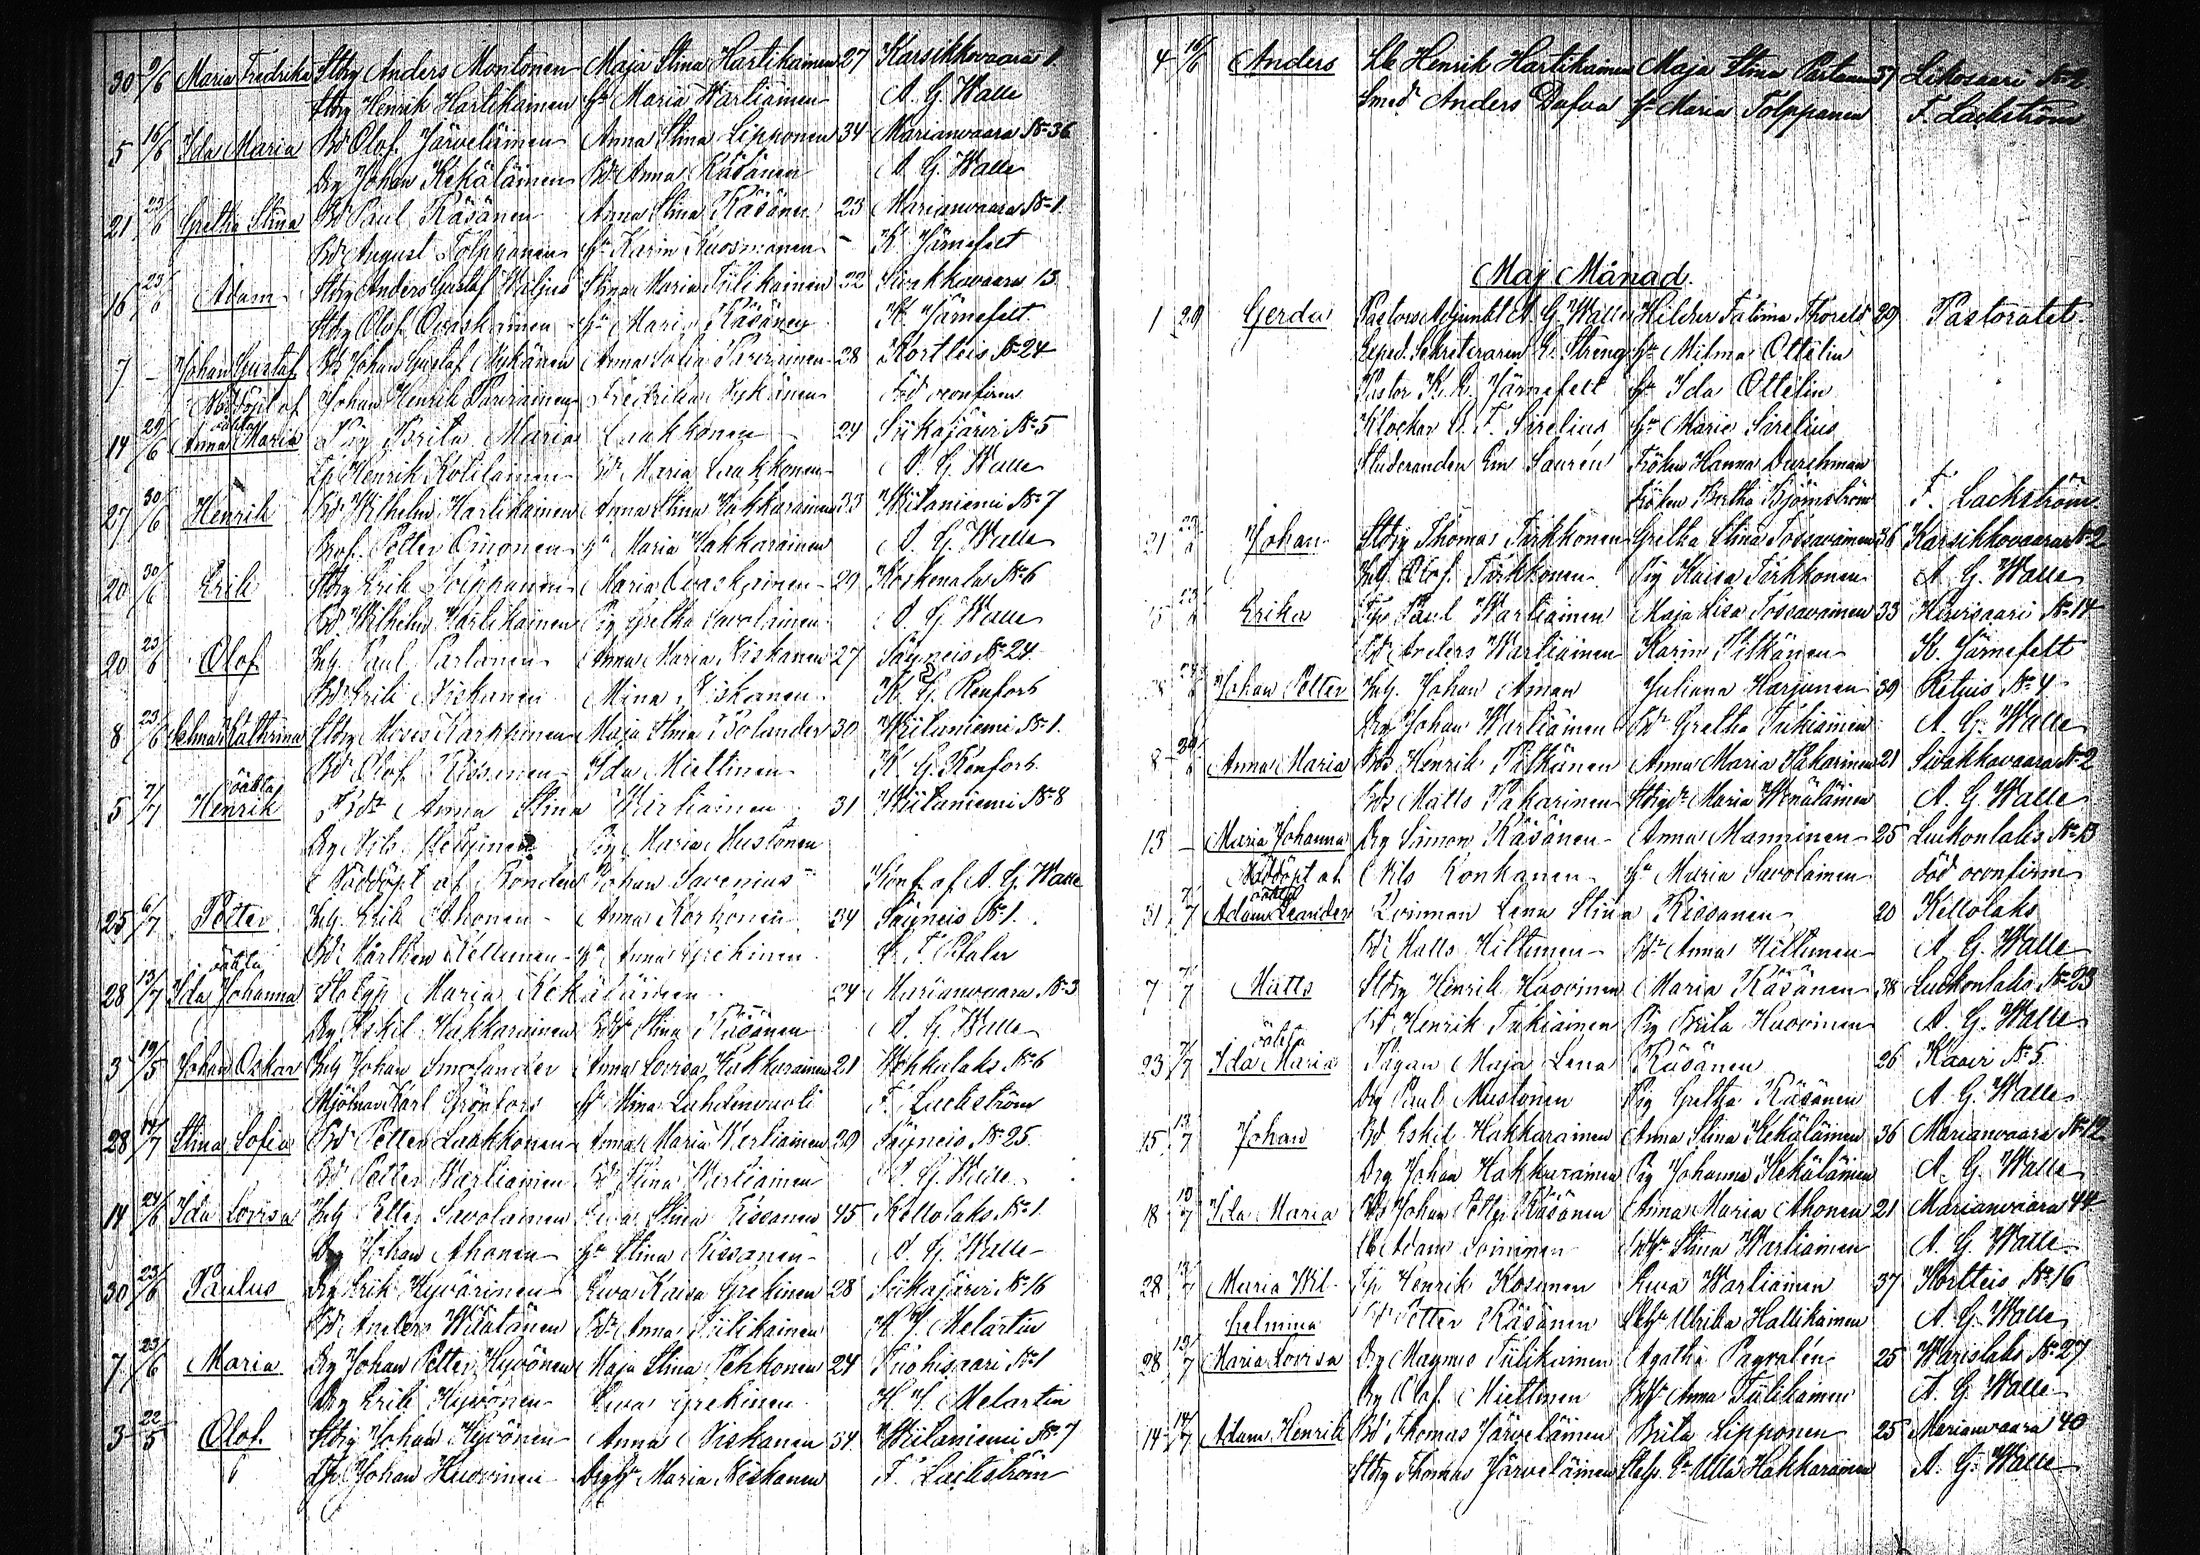 30 9/6 Maria Fredrika Stbg Anders Montonen Maja Stina Hartikainen 27 Karsikkovaara 1.
Stbg Henrik Hartikainen Hu Maria Wartiainen A. G. Walle
5 16/6 Ida Maria Bd Olof Järveläinen Anna Stina Lipponen 34 Marianvaara No 36
Drg Johan Kekäläinen Anna Räsänen A. G. Walle
21 23/6 Gretha Stina Bd Paul Räsänen Anna Stina Räsänen 23 Marianvaara No 1.
Bd August Tolppanen Hu Karin Kuosmanen K. Järnefelt
16 23/6 Adam Stbg Anders Gustaf Stina Maria Tiilikainen 32 Sivakkavaara 13
Stbg Olof Ovaskainen Hu Maria Räsänen K. Järnefelt
7 – Johan Gustaf Bd Johan Gustaf Nykänen Anna Sofia Parviainen 28 Kortteis No 24
Nöddöpt af Johan Henrik Parviainen Fredrika Nykänen död oconfirm
oäkta
14 29/6 Anna Maria Pig Brita Maria Laakkonen 24 Siikajärvi No 5
Henrik Kotilainen Maria Laakkonen A. G. Walle
27 30/6 Henrik Bd Wilhelm Hartikainen Anna Stina Hakkarainen 33 Wiitaniemi No 7
Petter Oinonen Hu Maria Hakkarainen A. G. Walle
20 30/6 Erik Stbg Erik Tolppanen Maria Ovaskainen 29 Koskenala No 6
Bd Wilhelm Hartikainen Pig Gretha Savolainen A. G. Walle
20 23/6 Olof Inh Paul Partanen Anna Maria Niskanen 27 Säyneis No 24
Bd Erik Niskanen Mina Niskanen K. G. Renfors
8 23/6 Kathrina Stbg Moses Karhinen Maja Stina Bolander 30 Wiitaniemi No 1.
Bd Olof Rissanen Ida Miettinen K. G. Renfors
oäkta
5 7/7 Henrik Anna Stina Wartiainen 31 Wiitaniemi No 8
Drg Nils Pig Maria Mustonen
Nöddöpt af Bonden Johan Savenius Konf af A. G. Walle
25 6/7 Petter Inh Erik Ahonen Anna Korhonen 24 Säyneis No 1.
Bd Mårthen Kettunen Hu Anna Grekinen
oäkta
28 13/7 Ida Johanna Maria Kekäläinen 24 Marianvaara No 3
Drg Eskel Hakkarainen Stina Räsänen A. G. Walle
3 19/5 Johan Oskar Inh Johan Smolander Anna Lovisa Hakkarainen 21 No 6
Mjölnar Karl Grönfors Hu Mina F. Lackström
28 14/7 Stina Sofia Bd Petter Laakkonen Anna Maria Wartiainen 29 Säyneis No 25
Bd Petter Wartiainen Stina Wartiainen A. G. Walle
14 24/6 Ida Lovisa Inh Petter Savolainen Ewa Stina Rissanen 45 Kellolaks No 1.
Drg Johan Ahonen Hu Stina Rissanen A. G. Walle
30 23/6 Paulus Drg Erik Hyvärinen Ewa Kaisa Grekinen 28 Siikajärvi No 16
Bd Anders Anna Tiilikainen H. J. Melartin
7 23/6 Maria Drg Johan Petter Hyvönen Maja Stina Pehkonen 24 No 1
Drg Erik Hyvönen Ewa Grekinen H. J. Melartin
3 22/5 Olof. Stbg Johan Hyvönen Anna Niskanen 34 Wiitaniemi No 7
Johan Huovinen Maria Niskanen F. Lackström
4 16/6 Anders Henrik Hartikainen Maja Stina Partanen 37 No 2
Smed Anders Dufva Hu Maria Tolppanen F. Lackström
Maj Månad.
1 29 Gerda Pastors Adjunkt A. G. Walle Hildur Fatima Thorell 29 Pastoratet.
Exped. Sekreteraren G. Streng Hu Milma Ottelin
Pastor K. Järnefelt Hu Ida Ottelin
Klockar F. Sirelius Hu Maria Sirelius
Studeranden Em Sauren Fröken Hanna Durchman
Fröken Bertha Björnström F. Lackström
21 Johan Stbg Thomas Tirkkonen Gretha Stina Tossavainen 36 Karsikkovaara No 2
Inh Olof Tirkkonen Pig Kaisa Tirkkonen A. G. Walle
Erika Paul Wartiainen Maja Lisa Tossavainen 33 Hirvisaari No 14
Bd Anders Wartiainen Karin Pitkänen K. Järnefelt
Johan Petter Inh Johan Åman Juliana Harjunen 39 Retuis No 4
Drg Johan Wartiainen Gretha Tukiainen A. G. Walle
8 Anna Maria Bds Henrik Pitkänen Anna Maria Pakarinen 21 Sivakkavaara No 2
Bds Matts Pakarinen Maria Wenäläinen A. G. Walle
13 – Maria Johanna Drg Simon Räsänen Anna Manninen 25 Luikonlaks No 13
Nöddöpt af Nils Konkanen Hu Maria Savolainen död oconfirm
oäkta
31 7/7 Adam Leander Qvinnan Lena Stina Rissanen 20 Kellolaks
Bd Matts Hiltunen Anna Hiltunen A. G. Walle
7 7/7 Matts Stbg Henrik Huovinen Maria Räsänen 38 Luikonlaks No 23
Bd Henrik Tukiainen Pig Brita Huovinen A. G. Walle
oäkta
23 7/7 Ida Maria Pigan Maja Lena Räsänen 26 Kaavi No 5
Drg Paul Mustonen Pig Gretha Räsänen A. G. Walle
15 13/7 Johan Bd Eskel Hakkarainen Anna Stina Kekäläinen 36 Marianvaara No 12
Drg Johan Hakkarainen Pig Johanna Kekäläinen A. G. Walle
18 Ida Maria Bds Johan Petter Räsänen Anna Maria Ahonen 21 Marianvaara 44
Adam Soininen Stina Wartiainen A. G. Walle
28 Maria Wil- Henrik Kosunen Ewa Wartiainen 37 Kortteis No 16
helmina Petter Räsänen Ulrika Hallikainen A. G. Walle
28 13/7 Maria Lovisa Drg Magnus Tiilikainen Agatha Pagvalén 25 Warislaks No 27
Drg Olof Miettinen Anna Tiilikainen A. G. Walle
14 14/7 Adam Henrik Bd Thomas Järveläinen Brita Lipponen 25 Marianvaara 40
Stbg Thomas Järveläinen Ulla Hakkarainen A. G. Walle